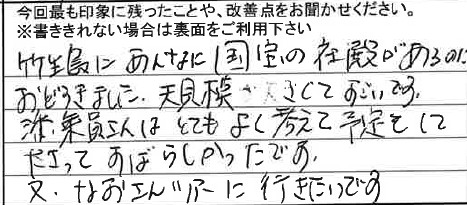 今回最も印象に残ったことや、改善点をお聞かせください。
※書ききれない場合は裏面をご利用下さい
竹生島にあんなに国宝の社殿があるのに
おどろきました.天見模が大きくてすごいです.
添乗員さんはとてもよく考えて予定をして
ださって すばらしかったです.
又.なおさんツアーに行きたいです